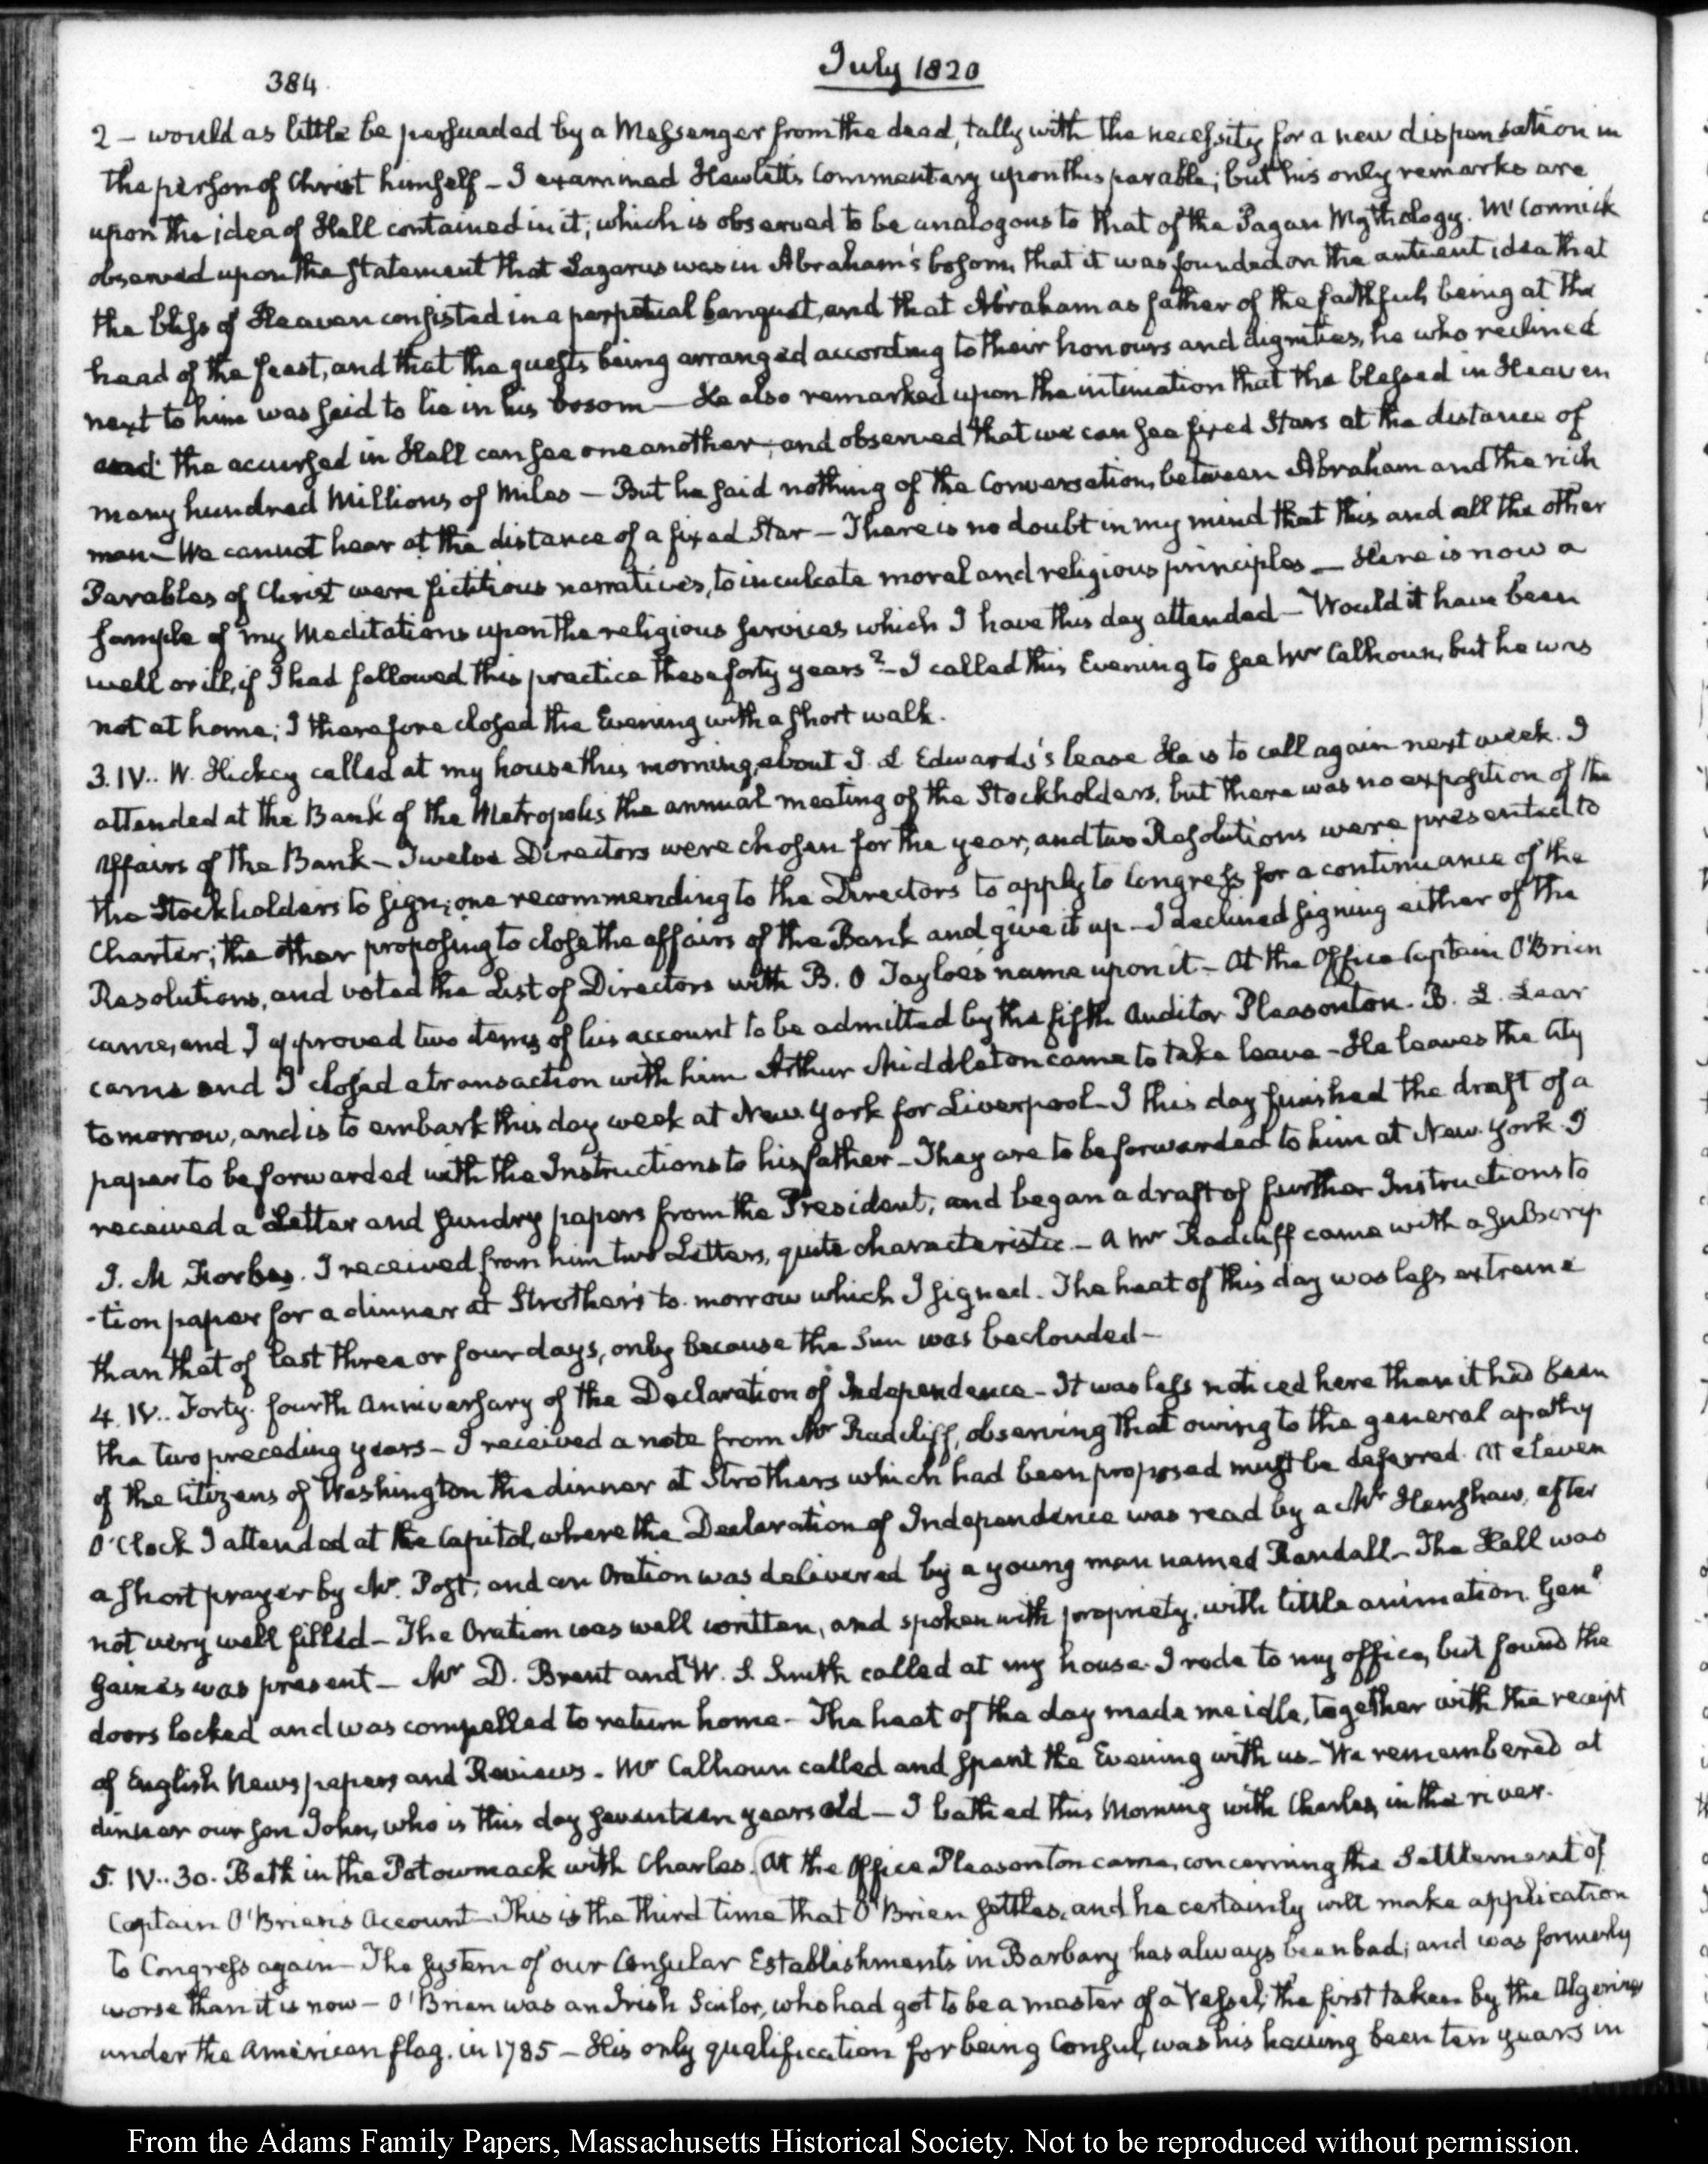 384
July 1820
2 - would as little be persuaded by a Messenger from the dead, tally with the necessity for a new dispensation in
the person of Christ himself - I examined Hewlett's Commentary upon this parable; but his only remarks are
upon the idea of Hell contained in it; which is observed to be analogous to that of the Pagan Mythology. McCormick
observed upon the statement that Lazarus was in Abraham's bosom, that it was founded on the antient idea that
the bliss of Heaven consisted in a perpetual banquet, and that Abraham as father of the faithful, being at the
head of the feast, and that the guests being arranged according to their honours and dignities, he who reclined
next to him was said to lie in his bosom - He also remarked upon the intimation that the blessed in Heaven
and the accursed in Hell can see one another, and observed that we can see fixed Stars at the distance of
many hundred Millions of Miles - But he said nothing of the Conversation, between Abraham and the rich
man - We cannot hear at the distance of a fixed Star - There is no doubt in my mind that this and all the other
Parables of Christ were fictitious narratives, to inculcate moral and religious principles - Here is now a
sample of my Meditations upon the religious services which I have this day attended - Would it have been
well or ill, if I had followed this practice these forty years? - I called this Evening to see Mr Calhoun, but he was
not at home; I therefore closed the Evening with a short walk.
3. IV.. W. Hickey called at my house this morning, about J. L Edwards's lease He is to call again next week. I
attended at the Bank of the Metropolis the annual meeting of the Stockholders, but there was no exposition of the
Affairs of the Bank - Twelve Directors were chosen for the year, and two Resolutions were presented to
the Stockholders to sign; one recommending to the Directors to apply to Congress for a continuance of the
Charter; the other proposing to close the affairs of the Bank and give it up - I declined signing either of the
Resolutions, and voted the List of Directors with B. O Tayloe's name upon it - At the Office Captain O'Brien
came, and I approved two items of his account to be admitted by the fifth Auditor Pleasonton. B. L. Lear
came and I closed a transaction with him Arthur Middleton came to take leave - He leaves the City
tomorrow, and is to embark this day week at New York for Liverpool - I this day finished the draft of a
paper to be forwarded with the Instructions to his father - They are to be forwarded to him at New York. I
received a Letter and sundry papers from the President; and began a draft of further Instructions to
J. M Forbes. I received from him two Letters, quite characteristic - A Mr Radcliff came with a subscrip
-tion paper for a dinner at Strother's to-morrow which I signed. The heat of this day was less extreme
than that of last three or four days, only because the Sun was beclouded -
4. IV.. Forty-fourth Anniversary of the Declaration of Independence - It was less noticed here than it had been
the two preceding years - I received a note from Mr Radcliff, observing that owing to the general apathy
of the Citizens of Washington the dinner at Strothers which had been proposed must be deferred. At eleven
O'Clock I attended at the Capitol, where the Declaration of Independence was read by a Mr Henshaw, after
a short prayer by Mr. Post; and an Oration was delivered by a young man named Randall - The Hall was
not very well filled - The Oration was well written, and spoken with propriety, with little animation. Genl
Gaines was present - Mr D. Brent and W. S. Smith called at my house. I rode to my office, but found the
doors locked and was compelled to return home - The heat of the day made me idle, together with the receipt
of English Newspapers and Reviews. Mr Calhoun called and spent the Evening with us - We remembered at
dinner our son John, who is this day seventeen years old - I bathed this Morning with Charles, in the river.
5. IV.. 30. Bath in the Potowmack with Charles. At the Office Pleasonton came, concerning the Settlement of
Captain O'Brien's Account - This is the third time that O'Brien settles, and he certainly will make application
to Congress again - The system of our Consular Establishments in Barbary has always been bad; and was formerly
worse than it is now - O'Brien was an Irish Sailor, who had got to be a master of a Vessel; the first taken by the Algerines
under the American flag. in 1785 - His only qualification for being Consul, was his having been ten years in
From the Adams Family Papers, Massachusetts Historical Society. Not to be reproduced without permission.